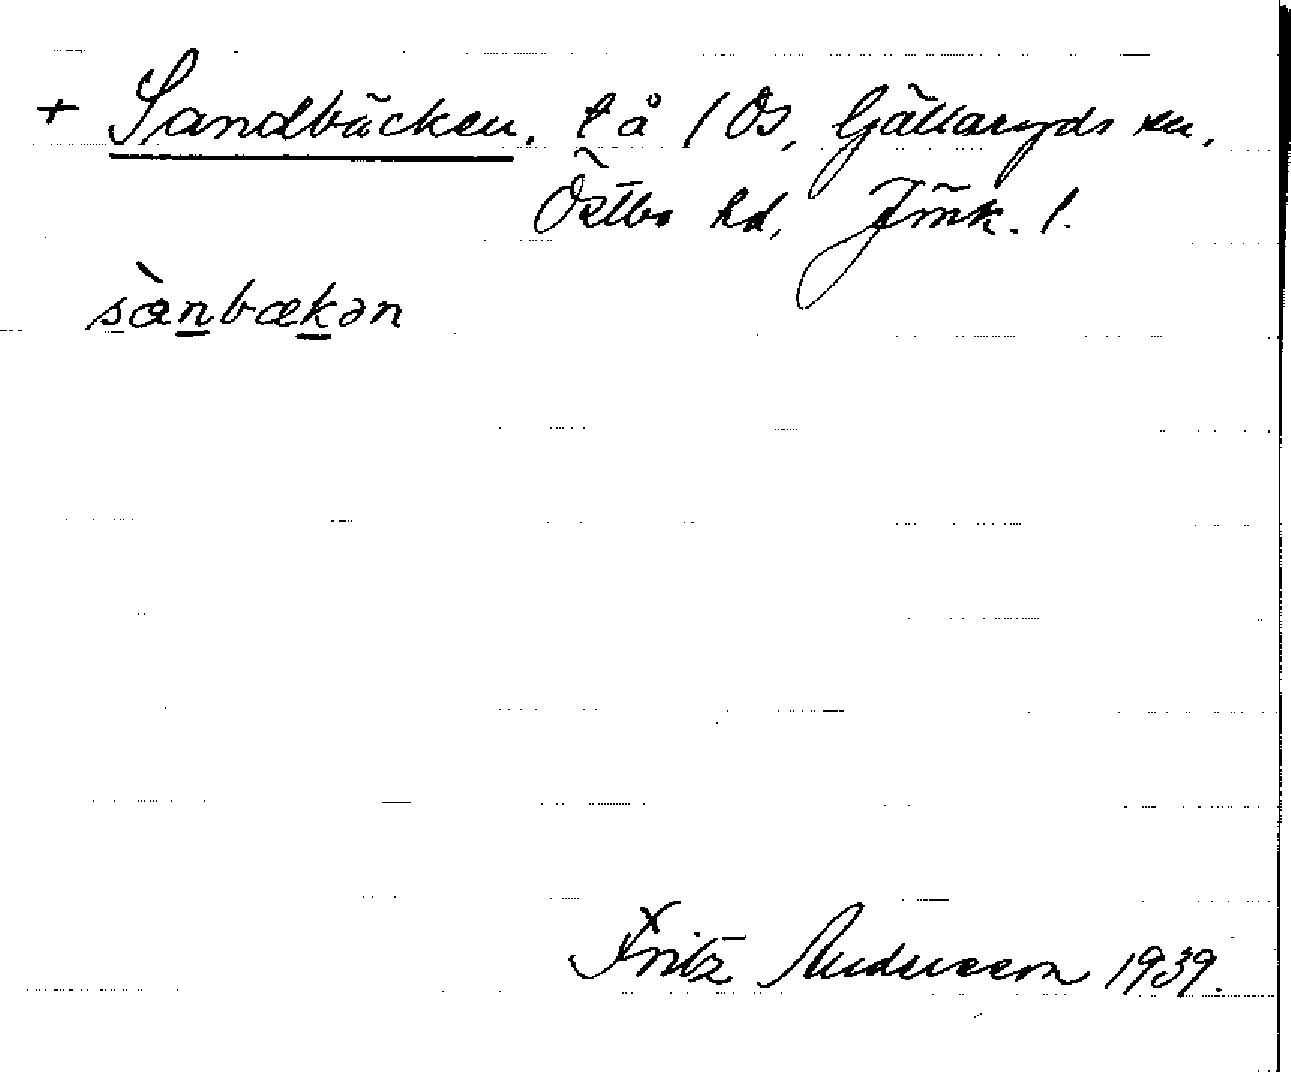 + Sandbäcken. t å 1 Ös, Gällaryds sn,
Östbo hd, Jmk. l.
sànbækən
Fritz Andersson 1939.